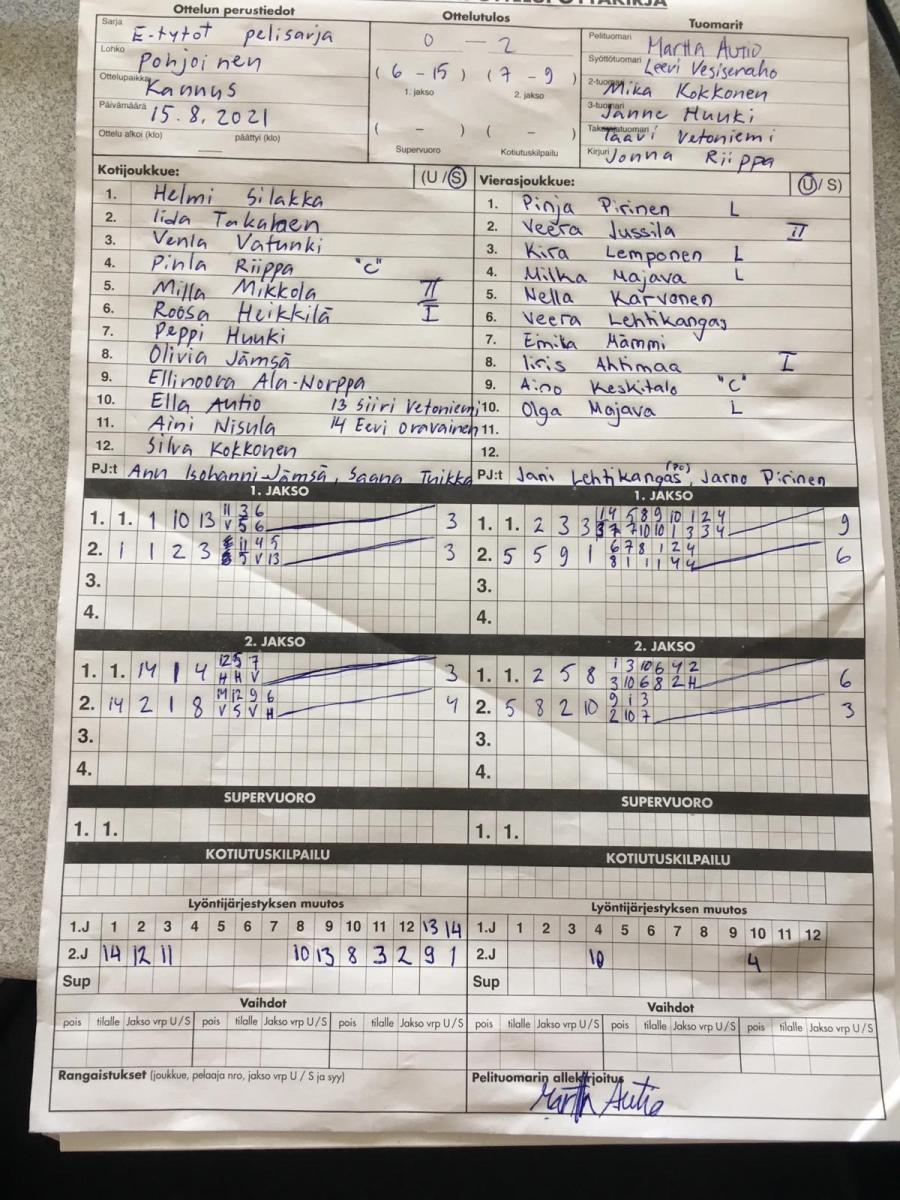 Ottelun perustiedot
Sarja E-tytöt pelisarja
Lohko Pohjoinen
Ottelupaikka Kannus
Päivämäärä 15.8.2021
Ottelu alkoi (klo) päättyi (klo)
Ottelutulos
0 – 2
( 6 – 15 ) ( 7 – 9 )
1. jakso 2. jakso
( – ) ( – )
Supervuoro Kotiutuskilpailu
Tuomarit
Pelituomari Martta Autio
Syöttötuomari Leevi Vesisenaho
2-tuomari Mika Kokkonen
3-tuomari Janne Huuki
Takarajatuomari Taavi Vetoniemi
Kirjuri Jonna Riippa
Kotijoukkue: (U / S)
1. Helmi Silakka
2. Iida Takaloen
3. Venla Vatunki
4. Pinla Riippa "C"
5. Milla Mikkola II
6. Roosa Heikkilä I
7. Peppi Huuki
8. Olivia Jämsä
9. Ellinoora Ala-Norppa
10. Ella Autio 13 Siiri Vetoniemi
11. Aini Nisula 14 Eevi Oravainen
12. Silva Kokkonen
PJ:t Ann Isohanni-Jämsä, Saana Tuikka
Vierasjoukkue: (U / S)
1. Pinja Pirinen L
2. Veera Jussila II
3. Kira Lemponen L
4. Milka Majava L
5. Nella Karvonen
6. Veera Lehtikangas
7. Emika Mämmi
8. Iiris Ahtimaa I
9. Aino Keskitalo "C"
10. Olga Majava L
11.
12.
PJ:t Jani Lehtikangas (PO), Jarno Pirinen
1. JAKSO
1. 1. 1 10 13 11 3 6 3
V 5 6
2. 1 1 2 3 11 4 5 3
5 V 13
3.
4.
1. JAKSO
1. 1. 2 3 3 14 5 8 9 10 1 2 4 9
3 7 7 10 10 1 3 3 4
2. 5 5 9 1 6 7 8 1 2 4 6
8 1 1 1 4 4
3.
4.
2. JAKSO
1. 1. 14 1 4 12 5 7 3
H H V
2. 14 2 1 8 14 12 9 6 4
V 5 V H
3.
4.
2. JAKSO
1. 1. 2 5 8 1 3 10 6 4 2 6
3 10 6 8 2 H
2. 5 8 2 10 9 1 3 3
2 10 7
3.
4.
SUPERVUORO
1. 1.
SUPERVUORO
1. 1.
KOTIUTUSKILPAILU
KOTIUTUSKILPAILU
Lyöntijärjestyksen muutos
1.J 1 2 3 4 5 6 7 8 9 10 11 12 13 14
2.J 14 12 11 10 13 8 3 2 9 1
Sup
Lyöntijärjestyksen muutos
1.J 1 2 3 4 5 6 7 8 9 10 11 12
2.J 10 4
Sup
Vaihdot
pois tilalle Jakso vrp U / S pois tilalle Jakso vrp U / S pois tilalle Jakso vrp U / S
Vaihdot
pois tilalle Jakso vrp U / S pois tilalle Jakso vrp U / S pois tilalle Jakso vrp U / S
Rangaistukset (joukkue, pelaaja nro, jakso vrp U / S ja syy)
Pelituomarin allekirjoitus
Martta Autio